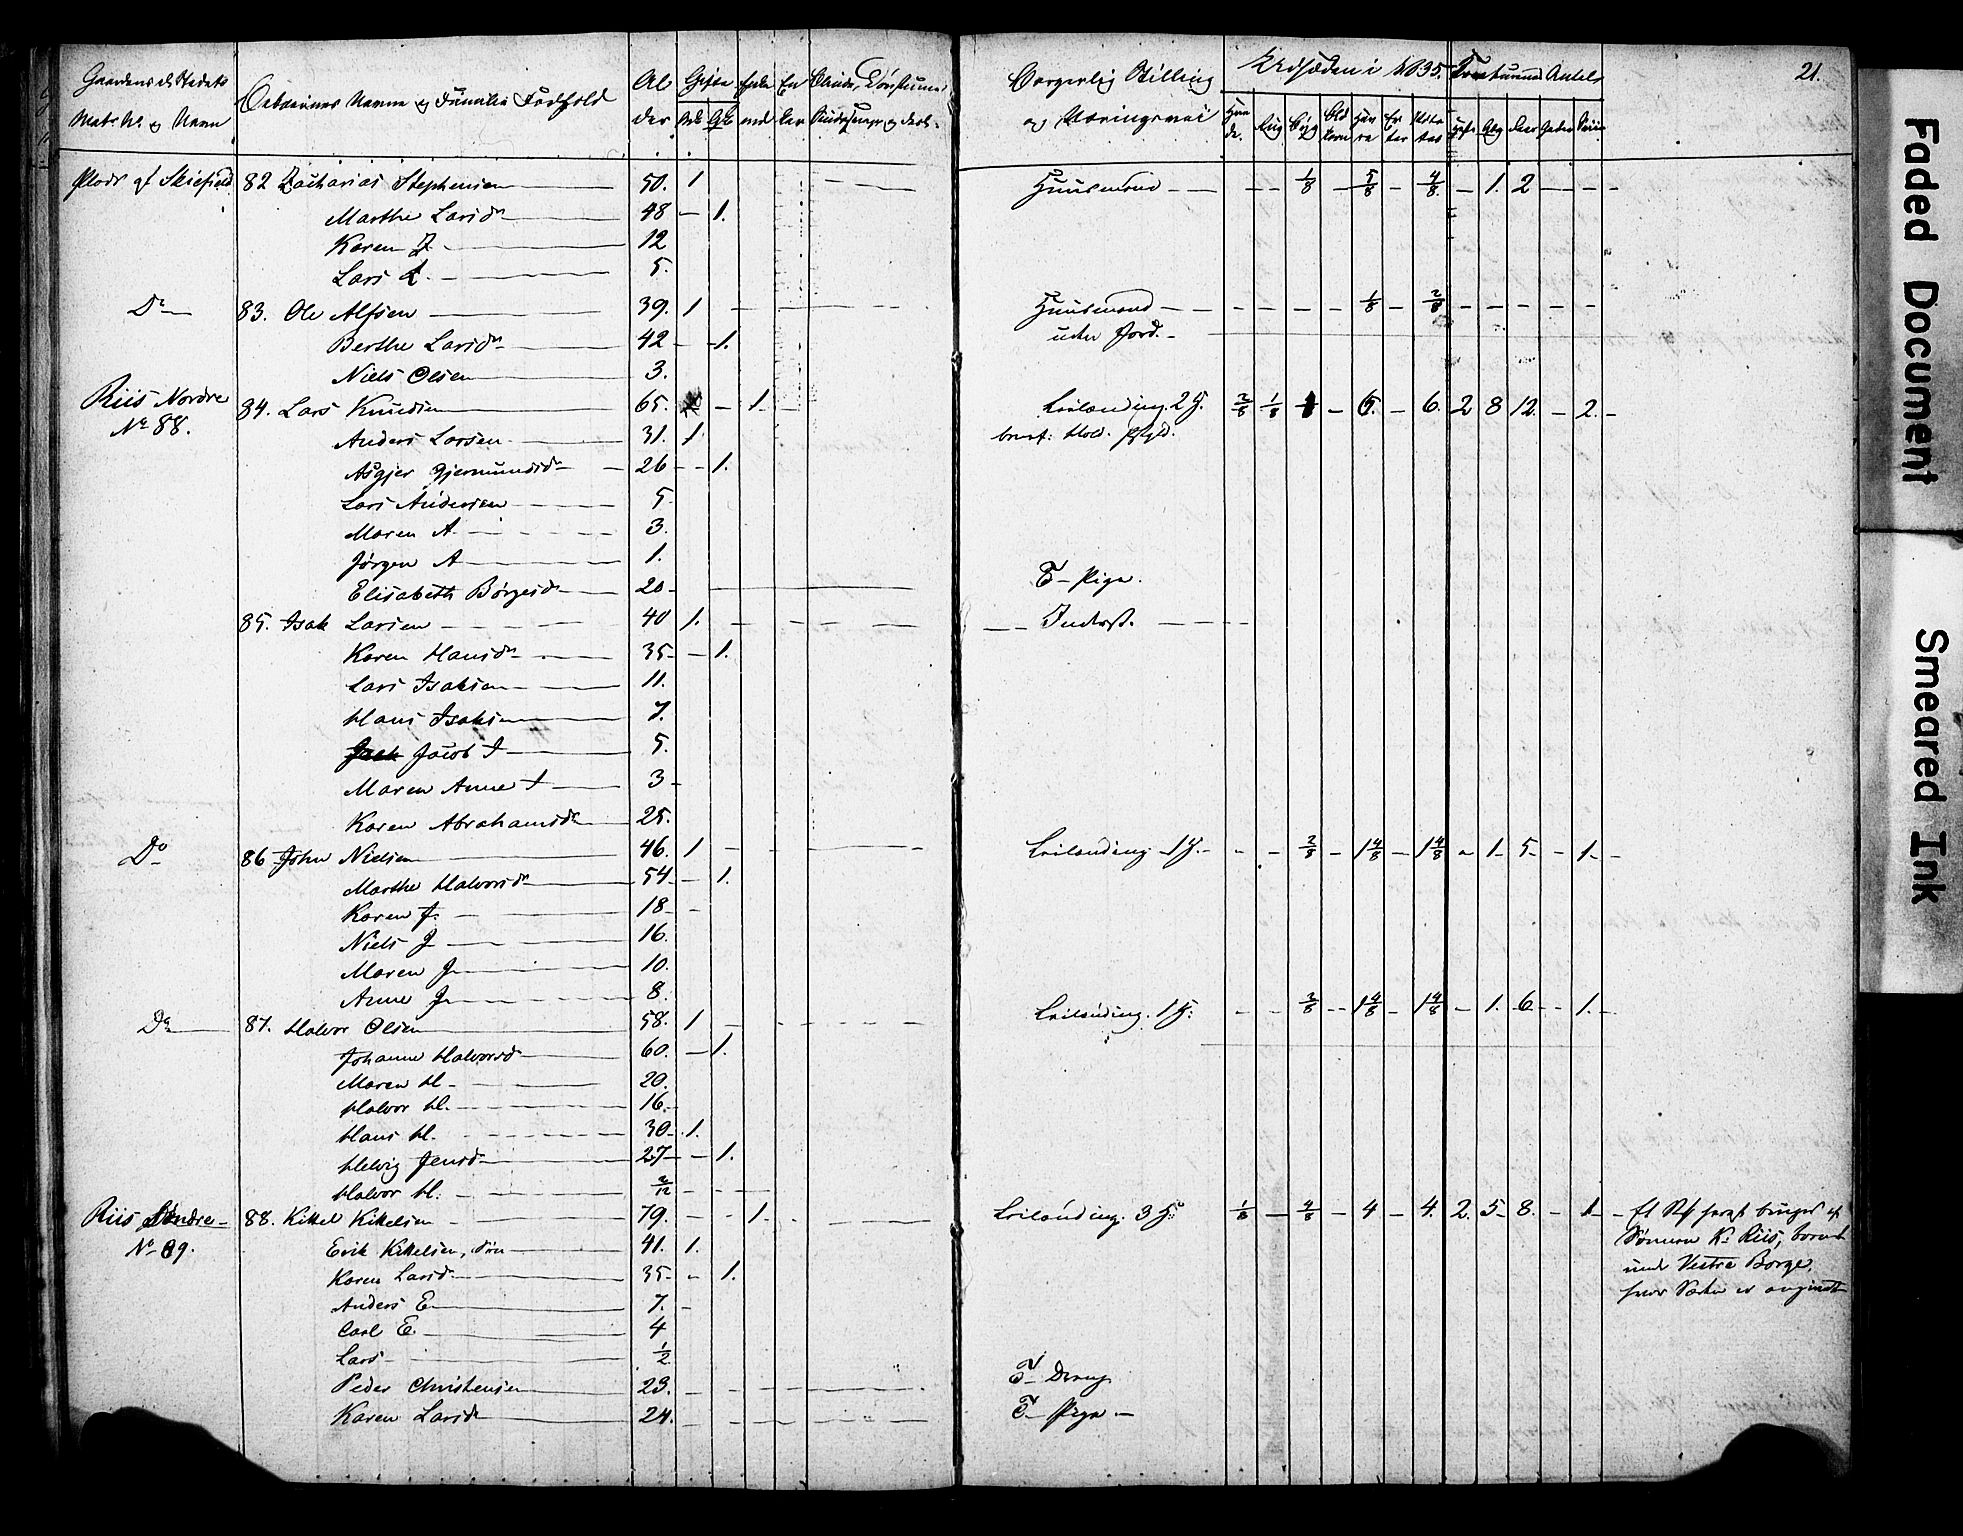 21.
Gaardens el Stedets Matr. No. og Navn
Beboernes Navne og Familie Forhold
Alder
Gifte
Enkemd
Enker
Borgerlig Stilling og Næringsvei
Udsæden i 1835.
Creaturernes Antal
Rug Byg
82 Zacharias Stephensen 50. 1 Huusmand 1/8 5/8 4/8 1. 2
Marthe Larsdr 48 1.
Karen Z. 12
Lars Z. 5.
Do 83. Ole Alfsen 39. 1 Huusmand 1/8 2/8
Berthe Larsdr 42 1. uden Jord.
Niels Olsen 3.
Riis Nordre 84. Lars Knudsen 65. 1 Leilænding. 2 2/8 1/8 6. 6. 2 8 12. 2.
No 88.
Anders Larsen 31. 1
Asgjer Gjermundsdr 26 1.
Lars Andersen 5.
Maren A. 3.
Jørgen A 1.
Elisabeth Børgesdr 20 T. Pige.
85. Isak Larsen 40 1. Inderst.
Karen Hansdr 35 1.
Lars Isaksen 11.
Hans Isaksen 7.
Jacob I 5.
Maren Anne I 3
Karen Abrahamsdr 25.
Do 86 John Nielsen 46. 1 Leilænding 1 2/8 1 4/8 1 4/8 1. 5. 1.
Marthe Halvorsdr 54 1.
Karen J. 18
Niels J 16.
Maren J 10.
Anne J 8.
Do 87. Halvor Olsen 58. 1 Leilænding. 1 3/8 1 4/8 1 4/8 1. 6. 1.
Johanne Halvorsd 60. 1.
Maren H. 20.
Halvor H. 16.
Hans H. 30 1.
Helvig Jensd 27 1.
Halvor H. 2/12
Riis Søndre 88. Kittel Kittelsen 79. 1. Leilænding. 3 1/8 4/8 4 4. 2. 5 8. 1
No 89.
Erik Kittelsen, Søn 41. 1.
Karen Larsd 35 1.
Anders E 7.
Carl E. 4
Lars 1/2
Peder Christensen 23. T. Dreng
Karen Larsdr 24. T. Pige
Sønnen K: Riis,
under Vestre Borge,
hvor Sæden er angivet
Faded Document
Smeared Ink